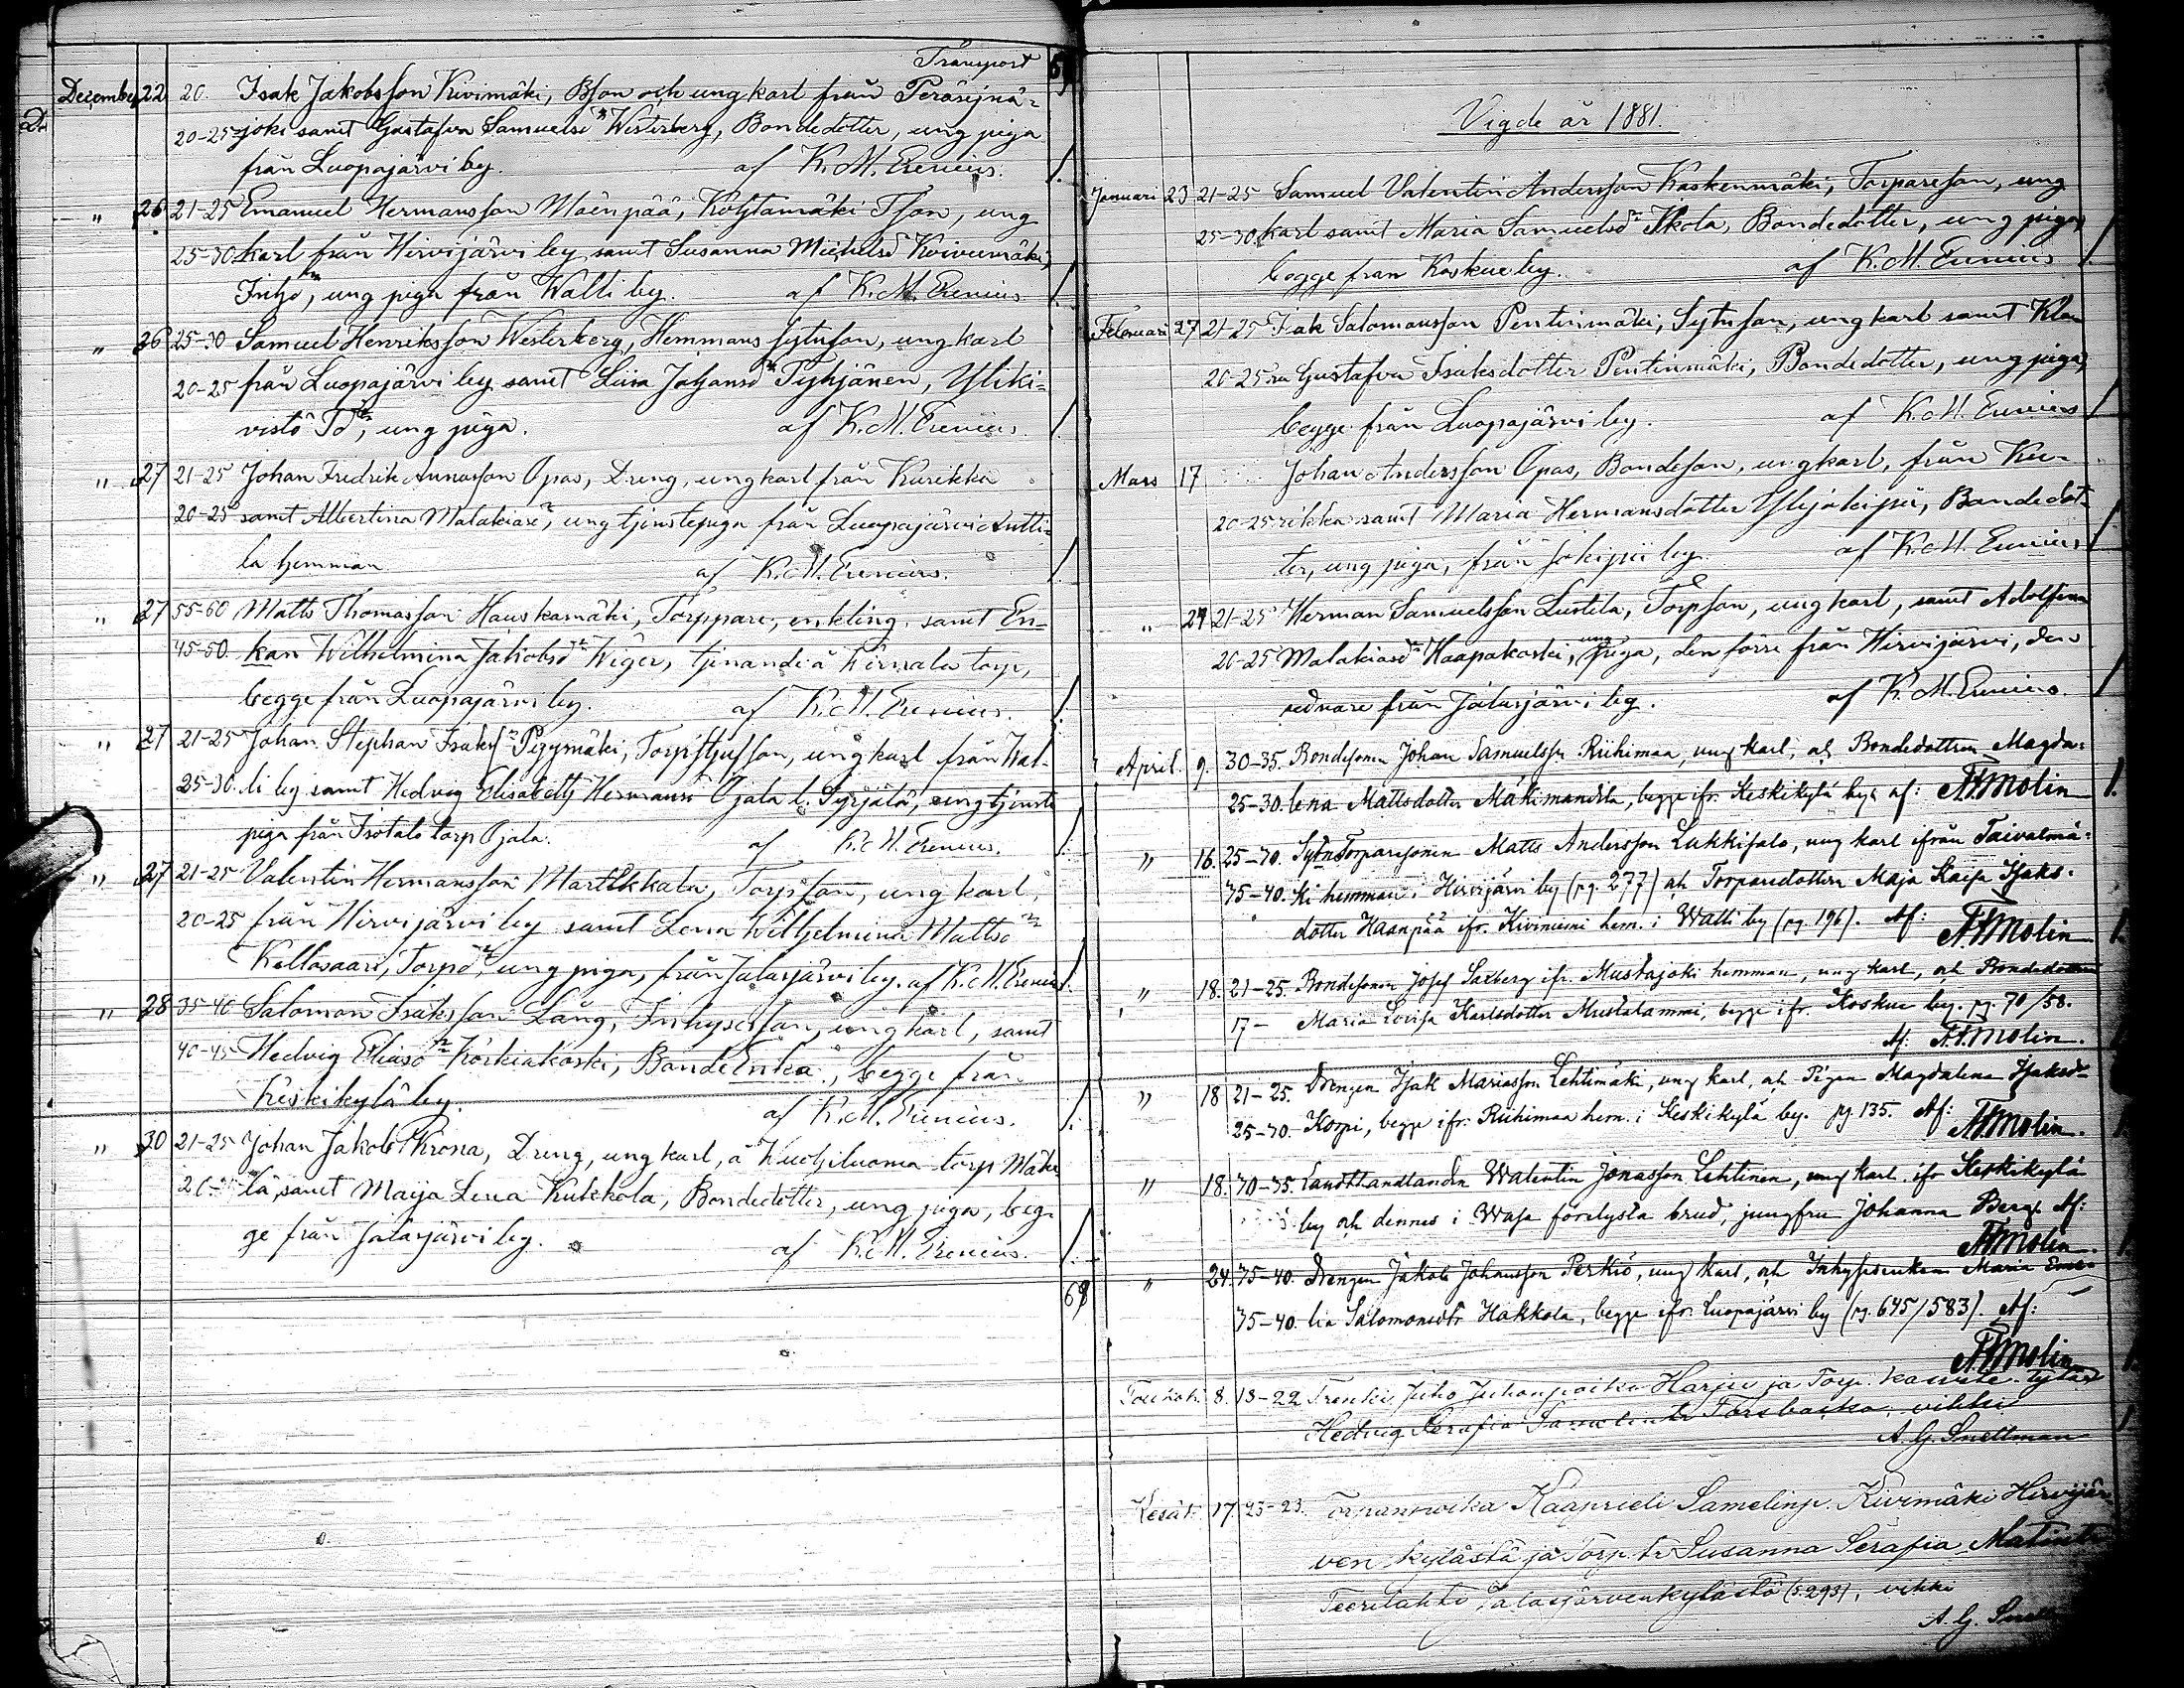 Transport
December 22 20. Isak Jakobsson Kivimäki, Bson och ung karl från Peräsejnä-
20-25 joki samt Gustafva Samuelsd:r Westerberg, Bondedotter, ung piga
från Luopajärvi by. af K. M. Erenius. 1.
" 26 21-25 Emanuel Hermansson Mäenpää, Kohtamäki Tson, ung
25-30 karl från Hirvijärvi by samt Susanna Michelsd:r Koivumäki,
ung piga från Walli by. af K. M. Erenius 1.
" 26 25-30 Samuel Henriksson Westerberg, Hemmans sytnson, ung karl
20-25 från Luopajärvi by samt Liisa Johansd:r Tyhjänen, Yliki-
vistö Td:r, ung piga. af K. M. Erenius 1.
" 27 21-25 Johan Fredrik Annasson Opas, Dreng, ung karl från Kurikka
20-25 samt Albertina Malakiasd:r, ung tjenstepiga från Luopajärvi Antti-
la hemman af K. M. Erenius. 1.
" 27 55-60 Matts Thomasson Hauskamäki, Torppare, enkling, samt En-
45-50. kan Wilhelmina Jakobsd:r Wiger, tjenande å torp,
begge från Luopajärvi by. af K. M. Erenius. 1.
" 27 21-25 Johan Stephan Isakss:n Pigymäki, ung karl från Wal-
25-30. li by samt Hedvig Elisabeth Hermansd:r Ojala l. Syrjälä, ung tjenste
piga från Isotalo torp Ojala. af K. M. Erenius. 1.
" 27 21-25 Valentin Hermansson Martikkala, Torpson, ung karl,
20-25 från Hirvijärvi by samt Lena Wilhelmina Mattsd:r
Kellosaari, Torpd:r, ung piga, från Jalasjärvi by. af K. M. Erenius 1.
" 28 35-40 Salomon Isaksson Lång, Inhysesson, ung karl, samt
40-45 Hedvig Eliasd:r Körkiäkoski, BondeEnka, begge från
Keskikylä by. af K. M. Erenius. 1.
" 30 21-25 Johan Jakob Krona, Dreng, ung karl, å torp Mäke-
lä, samt Maija Lena Kukkola, Bondedotter, ung piga, beg-
ge från Jalasjärvi by. af K. M. Erenius. 1.
Vigde år 1881.
Januari 23 21-25 Samuel Valentin Andersson Kaskenmäki, Torpareson, ung
25-30 karl samt Maria Samuelsd:r Ikola, Bondedotter, ung piga,
begge från Koskue by. af K. M. Erenius 1.
Februari 27 21-25 Isak Salomonsson Pentinmäki, Sytnson, ung karl samt Kla-
20-25 ra Gustafva Isaksdotter Pentinmäki, Bondedotter, ung piga,
begge från Luopajärvi by. af K. M. Erenius 1
Mars 17 Johan Andersson Opas, Bondeson, ung karl, från Ku-
20-25 rikka samt Maria Hermansdotter Ylijokipii, Bondedot-
ter, ung piga, från Jokipii by. af K. M. Erenius 1
" 27 21-25 Herman Samuelsson Lustila, Torpson, ung karl, samt Adolfina
20-25 Malakiasd:r Haapakoski, ung piga, den förre från Hirvijärvi, den
sednare från Jalasjärvi by. af K. M. Erenius. 1
April. 9. 30-35. Bondesonen Johan Samuelsson Riihimaa, ung karl, och Bondedottren Magda-
25-30. lena Mattsdotter Mäkimantila, begge ifr. Keskikylä by. af: Molin 1.
" 16. 25-30. SytnTorparesonen Matts Andersson Lukkisalo, ung karl ifrån Taivalmä-
35-40. ki hemman i Hirvijärvi by (pg. 277) och Torparedottern Maja Kaisa Isaks-
dotter Haanpää ifr. Kiviniemi hem. i Walli by (pg. 196). Af: Molin 1.
" 18. 21-25. Bondesonen Josef Saxberg ifr. Mustajoki hemman, ung karl, och Bondedottren
17- Maria Lovisa Karlsdotter Mustalammi, begge ifr. Koskue by. pg. 70/58.
Af: Molin.
" 18 21-25. Drengen Isak Mariasson Lehtimäki, ung karl, och Pigan Magdalena Isaksd:r
25-30. Korpi, begge ifr. Riihimaa hem. i Keskikylä by. pg. 135. Af: Molin.
" 18. 30-35. Landthandlanden Walentin Jonasson Lehtinen, ung karl ifr Keskikylä
by och dennes i Wasa förelysta brud, jungfru Johanna Berg. Af:
Molin.
" 24. 35-40. Drengen Jakob Johansson Perkiö, ung karl, och Inhysesenkan Maria
35-40. lia Salomonsdtr Hakkola, begge ifr. Luopajärvi by (pg. 645/583). Af:
Molin
Toukok. 8. 18-22 Frenki Juho Juhonpoika Harju ja Torp. tytär
Hedvig Serafia vihki
A. G. Snellman
Kesäk. 17. 23-23. Torpanpoika Kaaprieli Samelinp. Kivimäki Hirvijär-
ven kylästä ja Torp. tr Susanna Serafia Matintr
Teerilahti Jalasjärvenkylästä (s. 293), vihki
A. G.